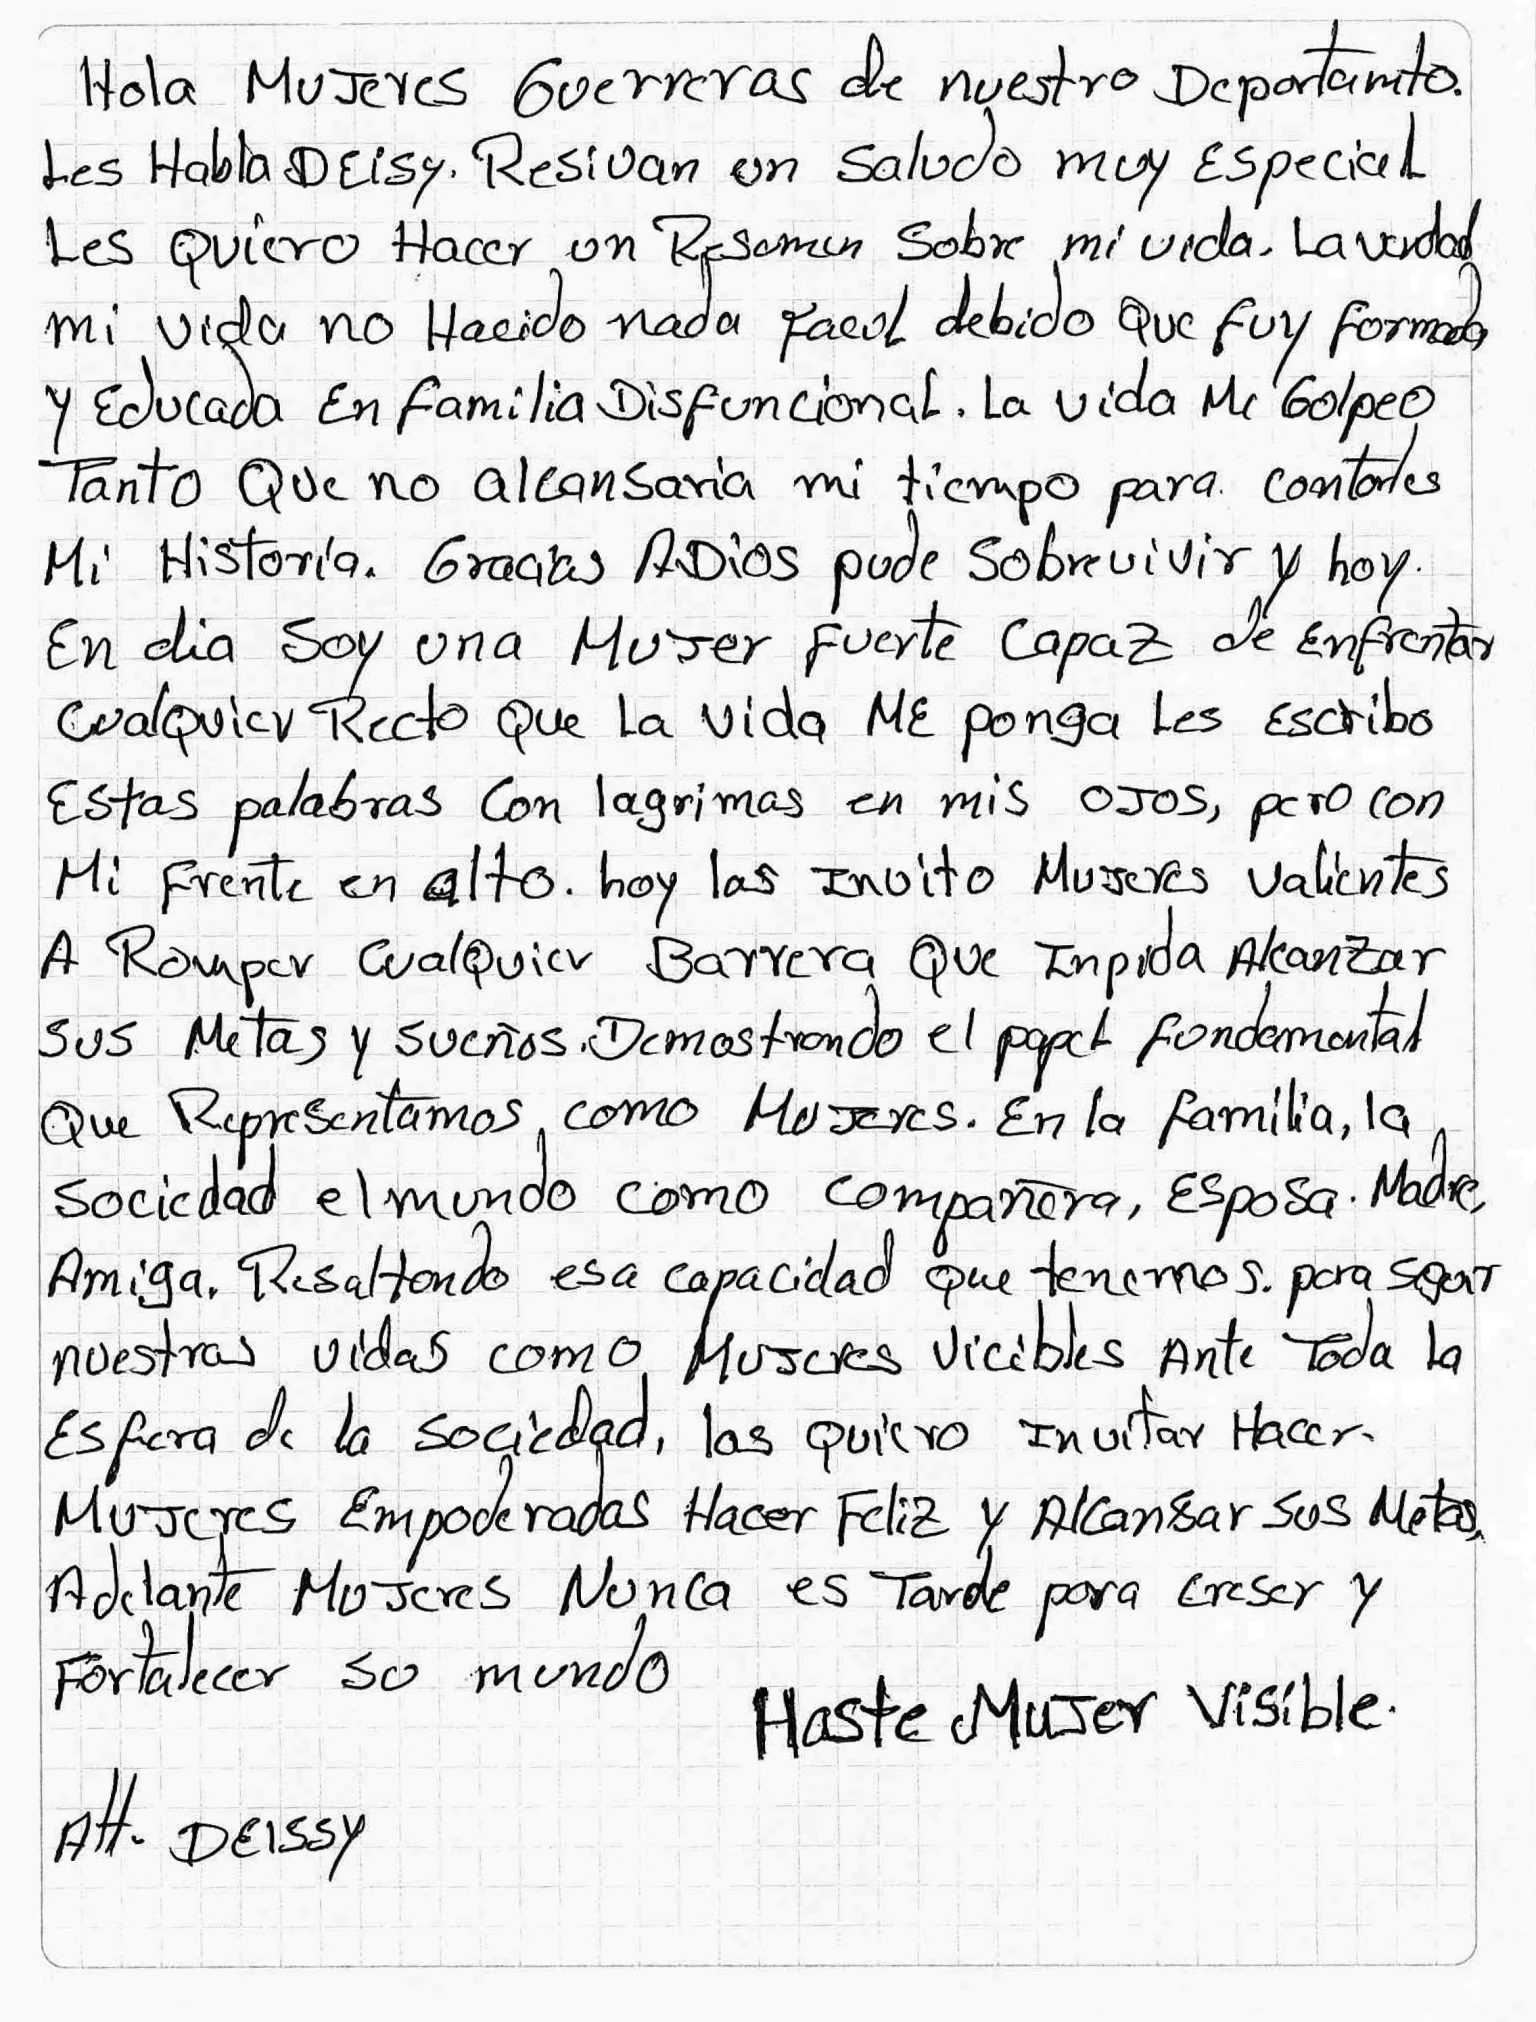 Hola Mujeres Guerreras de nuestro Departamto.
Les Habla DEisy. Resivan un Saludo muy Especial
Les Quiero Hacer un Resumen Sobre mi vida. La verdad
mi vida no Hacido nada Facil debido Que Fuy Formada
y Educada En Familia Disfuncional. La vida Me Golpeo
Tanto Que no alcansaria mi tiempo para contarles
Mi Historia. Gracias ADios pude Sobrevivir y hoy.
En dia Soy una Mujer Fuerte Capaz de Enfrentar
Cualquier Recto Que La vida ME ponga Les Escribo
Estas palabras Con lagrimas en mis OJOS, pero con
Mi Frente en alto. hoy las Invito Mujeres Valientes
A Romper Cualquier Barrera Que Inpida Alcanzar
Sus Metas y sueños. Demostrando el papel Fundamental
Que Representamos como Mujeres. En la familia, la
Sociedad el mundo como compañera, Esposa. Madre,
Amiga. Resaltando esa capacidad que tenemos. para seguir
nuestras vidas como Mujeres Vicibles Ante Toda la
Esfera de la sociedad, las Quiero Invitar Hacer.
Mujeres Empoderadas Hacer Feliz y Alcansar Sus Metas.
Adelante Mujeres Nunca es Tarde para creser y
Fortalecer so mundo
Haste Mujer Visible.
Att. DEISSY